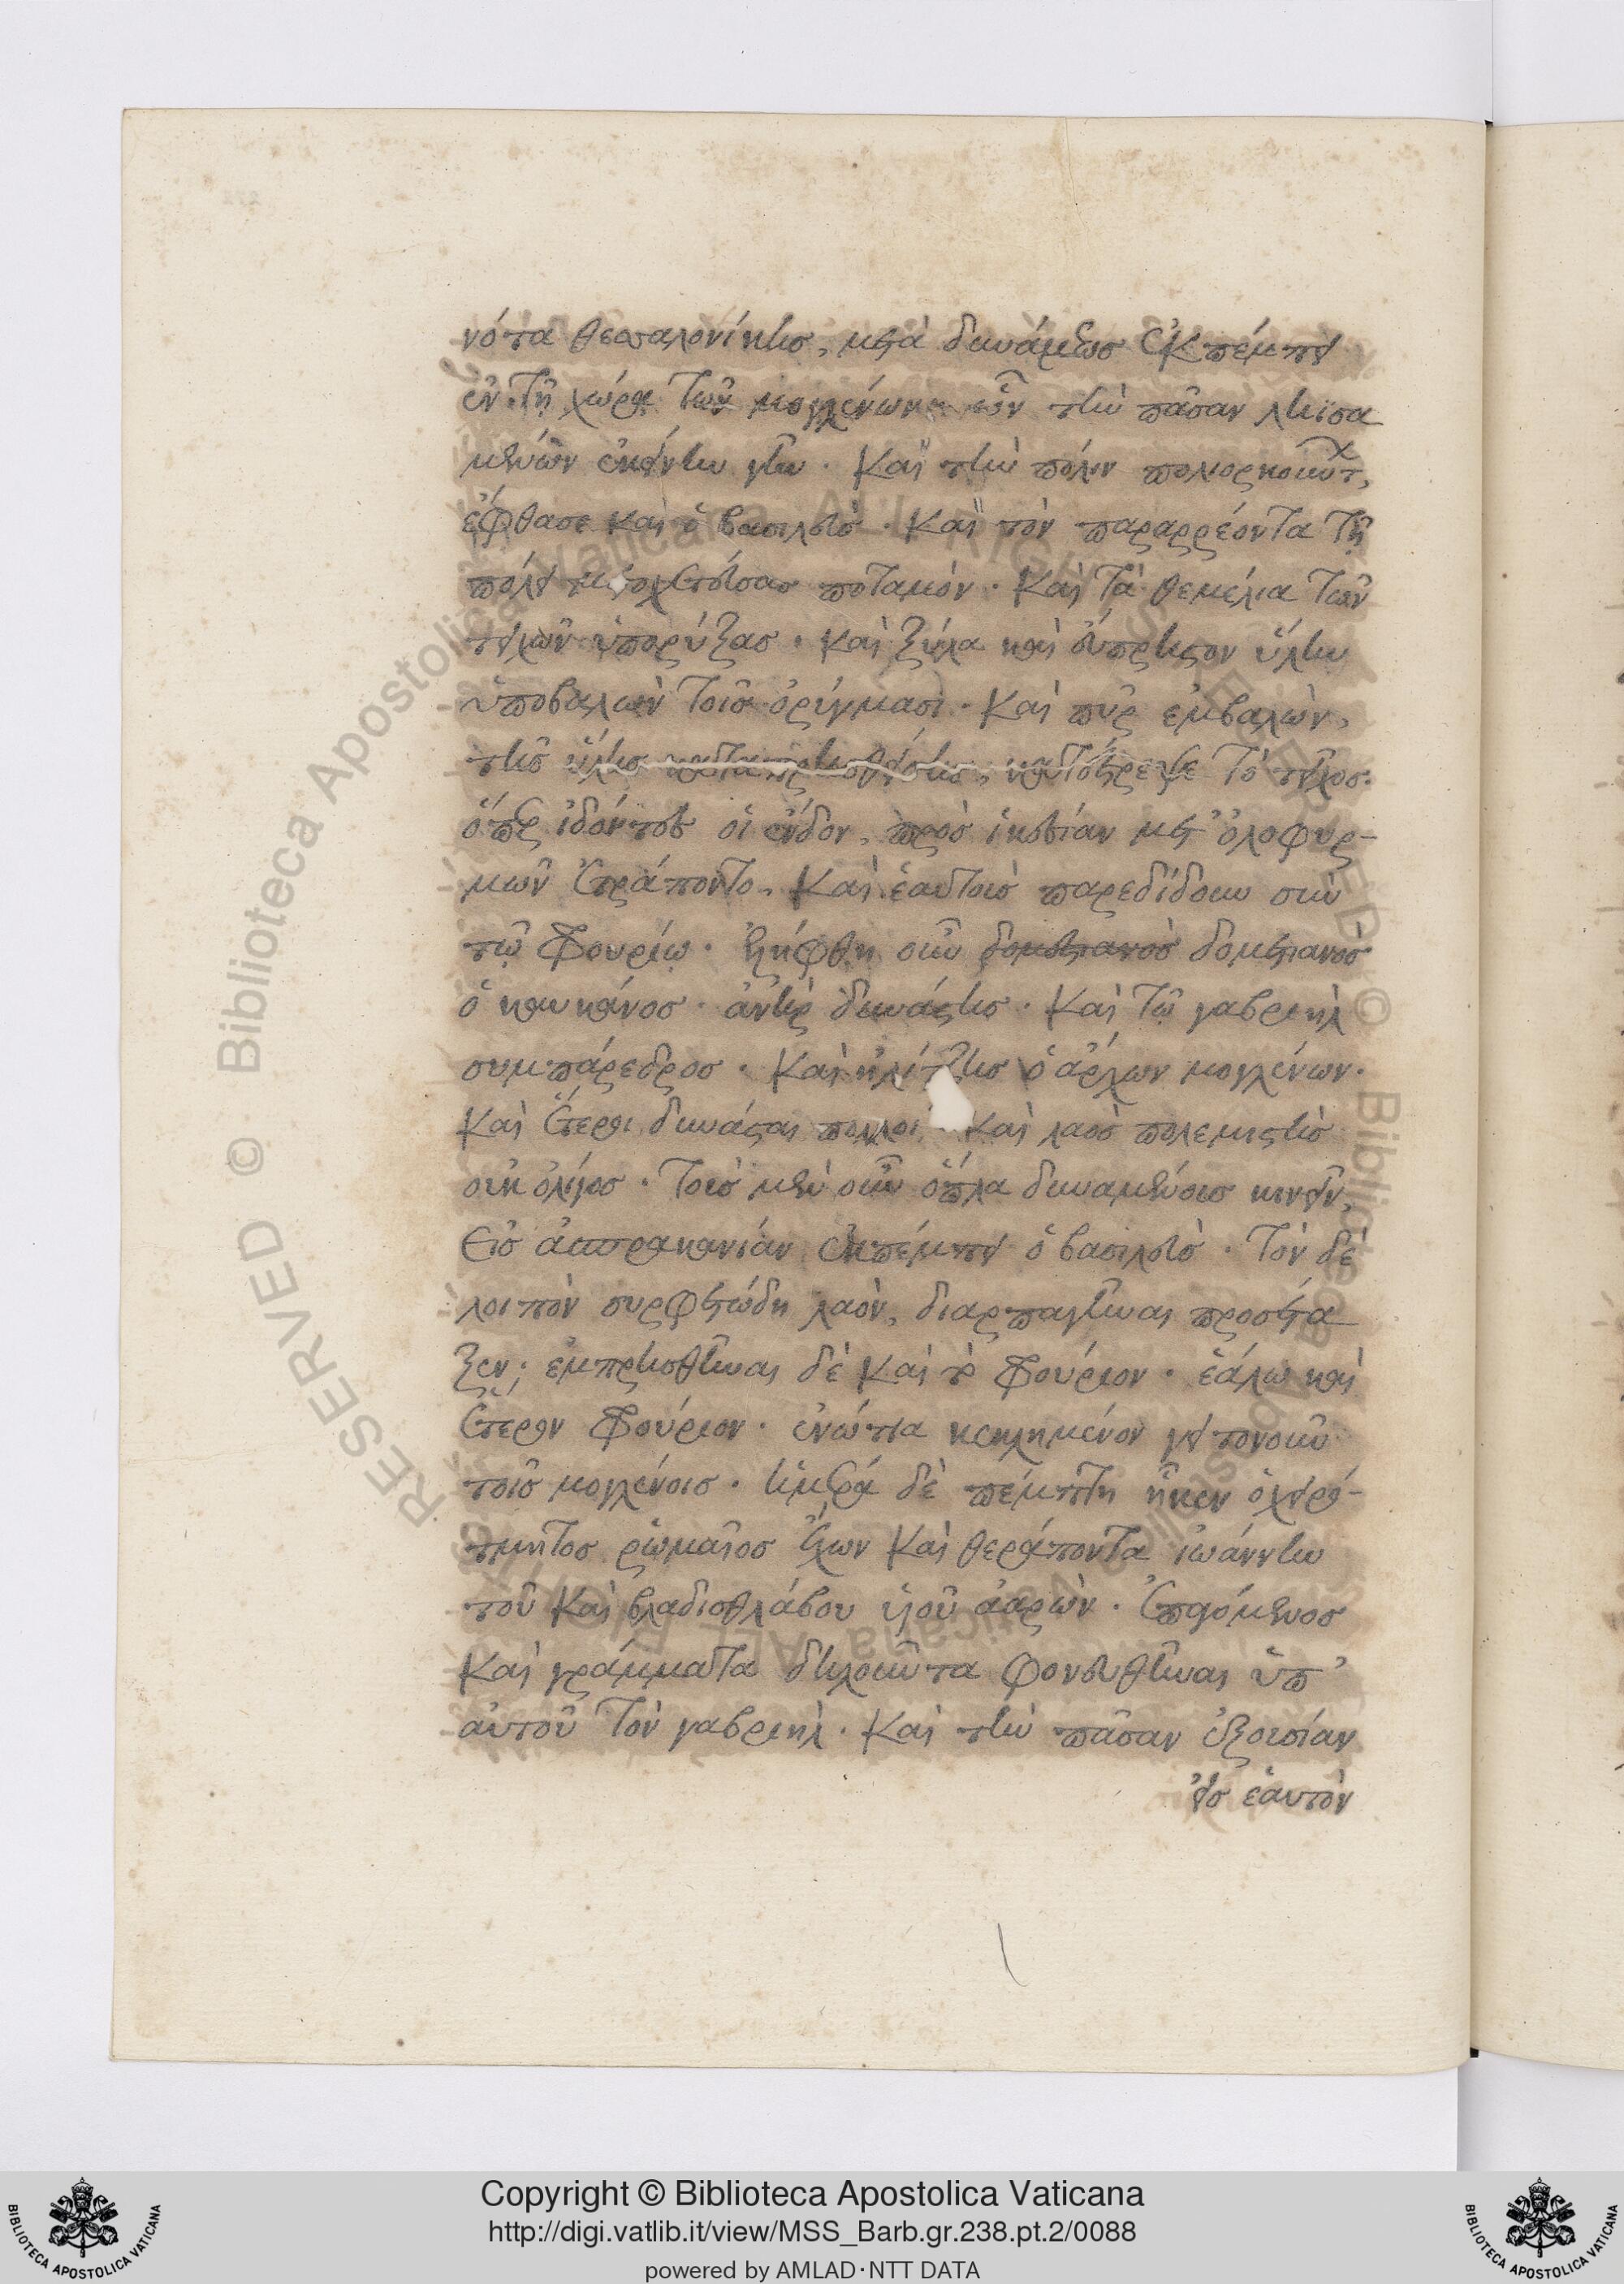 νότα θεσσαλονίκησ, μετὰ δυνάμεωσ ἐκπέμπει
ἐν τῆ χώρα τῶν μογλένων· ὧν τὴν πᾶσαν ληϊσα
μένων ἐκείνην γῆν · Καὶ τὴν πόλιν πολιορκούντ,
ἔφθασε καὶ ὁ βασιλεὺσ · Καὶ τὸν παραρρέοντα τῆ
πόλει μετοχετεύσασ ποταμόν · Καὶ τὰ θεμέλια τῶν
τειχῶν ὑπορύξασ · καὶ ξύλα καὶ εὔπρηστον ὕλην
ὑποβαλὼν τοῖσ ὀρύγμασι · Καὶ πῦρ ἐμβαλὼν,
τῆσ ὕλησ καταπρησθείσησ, κατέστρεψε τὸ τεῖχοσ.
ὅπερ ἰδόντεσ οἱ ἔνδον, πρὸσ ἱκεσίαν μετ' ὀλοφυρ-
μῶν ἐτράποντο, Καὶ ἑαυτοὺσ παρεδίδουν σὺν
τῶ φρουρίω · ἐλήφθη οὖν δομετιανὸσ δομετιανὸσ
ὁ καυκάνοσ · ἀνὴρ δυνάστησ · Καὶ τῶ γαβριὴλ
συμπάρεδροσ · Καὶ ἠλίτζησ ὁ ἄρχων μογλένων ·
Καὶ ἕτεροι δυνάσται πολλοὶ Καὶ λαὸσ πολεμιστὴσ
οὐκ ὀλίγοσ · Τοὺσ μὲν οὖν ὅπλα δυναμένουσ κινεῖν,
εἰσ ἀασπρακανίαν ἐκπέμπει ὁ βασιλεὺσ · Τὸν δὲ
λοιπὸν συρφετώδη λαὸν, διαρπαγῆναι προσέτα
ξεν; ἐμπρησθῆναι δὲ καὶ τὸ φρούριον · ἑάλω καὶ
ἕτερον φρούριον · ἐνώτια κεκλημένον γειτονοῦν
τοῖσ μογλένοισ · ἡμέρα δὲ πέμπτη ἧκεν ὁ χειρό-
τμητοσ ρωμαῖοσ ἔχων Καὶ θεράποντα ἰωάννην
τοῦ Καὶ βλαδισθλάβου υἱοῦ ἀαρὼν · ἐπαγόμενοσ
Καὶ γράμματα δηλοῦντα φονευθῆναι ὑπ'
αὐτοῦ τὸν γαβριὴλ · Καὶ τὴν πᾶσαν ἐξουσίαν
εἰσ ἑαυτὸν
Copyright © Biblioteca Apostolica Vaticana
http://digi.vatlib.it/view/MSS_Barb.gr.238.pt.2/0088
powered by AMLAD·NTT DATA
BIBLIOTECA APOSTOLICA VATICANA
BIBLIOTECA APOSTOLICA VATICANA